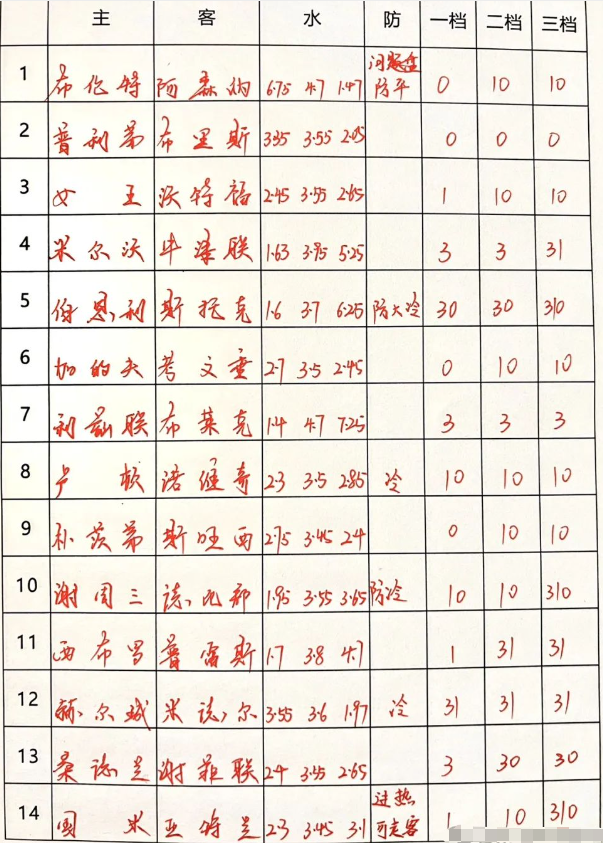 主 客 水 防 一档 二档 三档
1 布伦特 阿森纳 6.75 4.7 1.47 问题盘 防平 0 10 10
2 普利茅 布里斯 3.35 3.55 2.05 0 0 0
3 女王 沃特福 2.45 3.55 2.65 1 10 10
4 米尔沃 牛津联 1.63 3.95 5.25 3 3 31
5 伯恩利 斯托克 1.6 3.7 6.25 防大冷 30 30 310
6 加的夫 考文垂 2.7 3.5 2.45 0 10 10
7 利兹联 布莱克 1.4 4.7 7.25 3 3 3
8 卢顿 诺维奇 2.3 3.5 2.85 冷 10 10 10
9 朴茨茅 斯旺西 2.75 3.45 2.4 0 10 10
10 谢周三 德比郡 1.95 3.55 3.65 防冷 10 10 310
11 西布罗 普雷斯 1.7 3.8 4.7 1 31 31
12 赫尔城 米德尔 3.55 3.6 1.97 冷 31 31 31
13 桑德兰 谢菲联 2.4 3.55 2.65 3 30 30
14 国米 亚特兰 2.3 3.45 3.1 过热 可走客 1 10 310